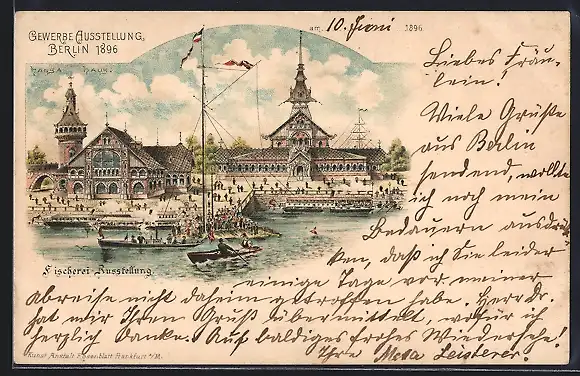 GEWERBE AUSSTELLUNG,
BERLIN 1896
am 10. Juni 1896
Fischerei-Ausstellung.
Liebes Fräu-
lein!
Viele Grüße
aus Berlin
sendend, wollte
ich noch mein
Bedauern ausdrük-
ken, daß ich Sie leider
einige Tage vor meiner
Abreise nicht daheim getroffen habe. Herr Dr.
hat mir Ihren Gruß übermittelt, wofür ich
herzlich danke. Auf baldiges frohes Wiedersehe!
Ihre Meta Leisterer.
Kunst Anstalt Frankfurt a/M.